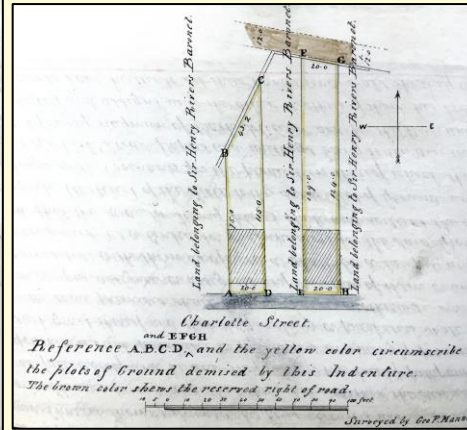 Land belonging to Sir Henry Rivers Baronet.
Land belonging to Sir Henry Rivers Baronet.
Land belonging to Sir Henry Rivers Baronet.
12.0
F
20.0
G
C
43.2
B
W
E
115.0
124.0
20.0
20.0
A
D
E
H
Charlotte Street.
and EFGH
Reference A.B.C.D. ^ and the yellow color circumscribe
the plots of Ground demised by this Indenture.
The brown color shews the reserved right of road.
100 feet
Surveyed by Geo. P. Mann